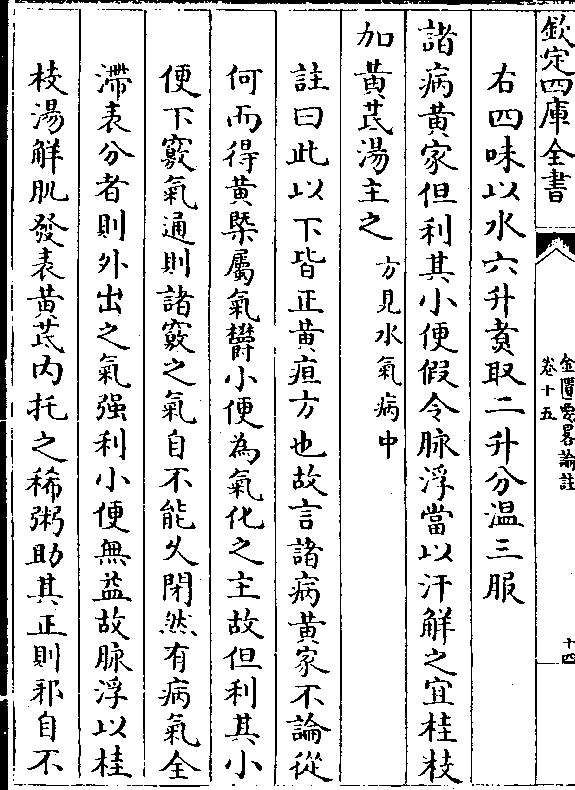 欽定四庫全書
金匱要畧論註
卷十五
十四
右四味以水六升煮取二升分溫三服
諸病黃家但利其小便假令脉浮當以汗解之宜桂枝
加黃芪湯主之方見水氣病中
註曰此以下皆正黃疸方也故言諸病黃家不論從
何而得黃槩屬氣欝小便為氣化之主故但利其小
便下竅氣通則諸竅之氣自不能久閉然有病氣全
滯表分者則外出之氣强利小便無益故脉浮以桂
枝湯解肌發表黃芪内托之稀粥助其正則邪自不